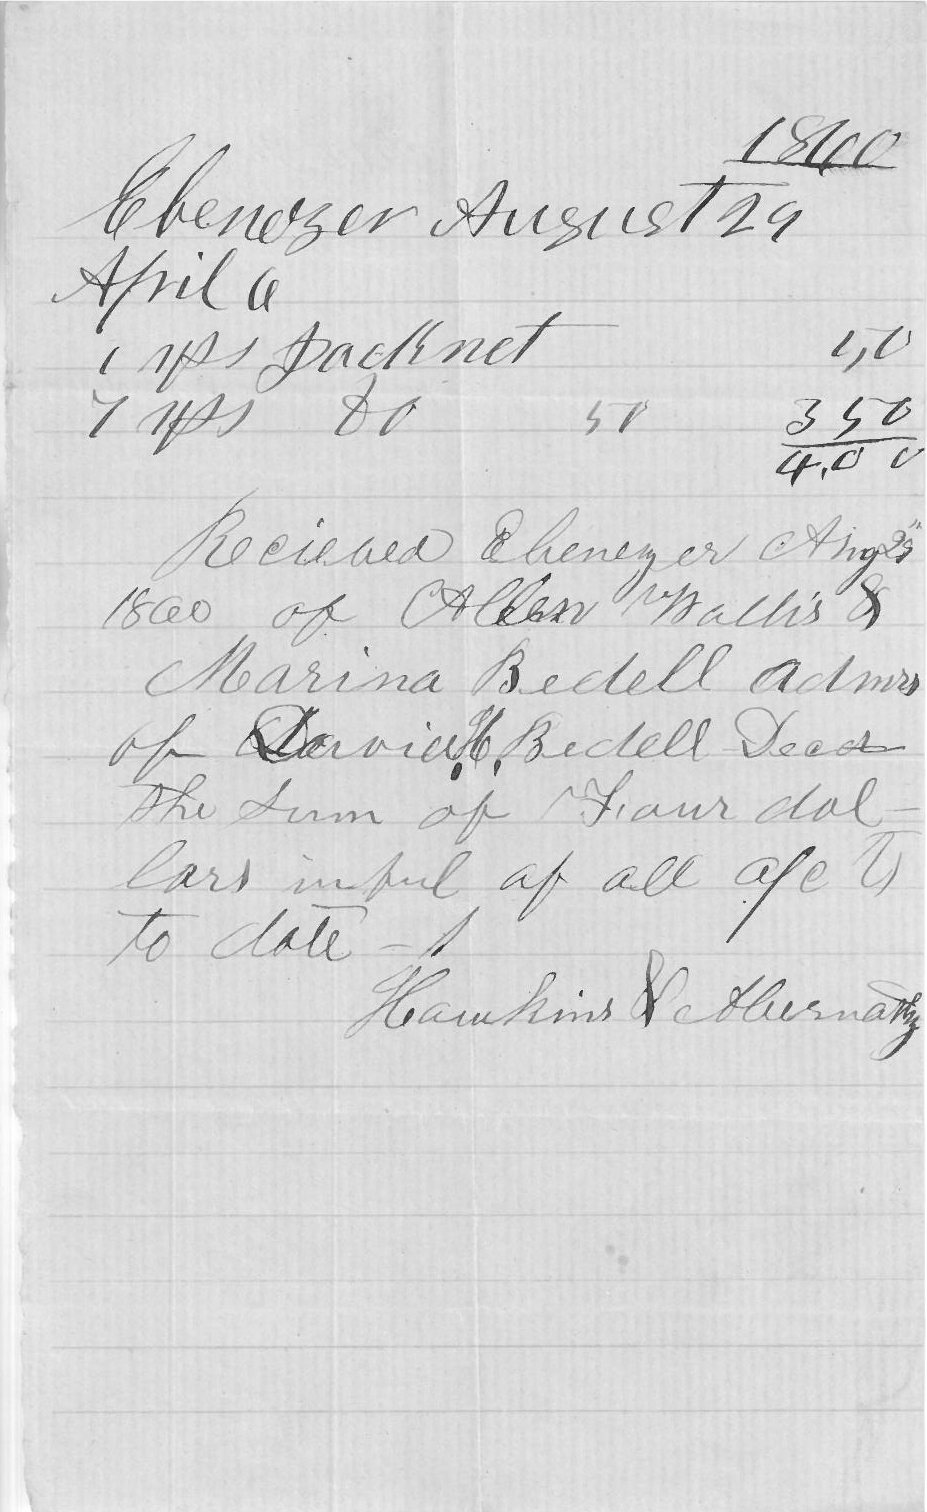 1860
Ebenezer August 29
April 6
1 yds Jacknet 1,0
7 yds Do 50 3 50
4.0 0
Recieved Ebenezer Aug 29"
1860 of Allen Wallis &
Marina Bedell admrs
of David H. Bedell Decd
the sum of Four dol-
lars in ful of all a/c
to date -
Hawkins & Abernathy